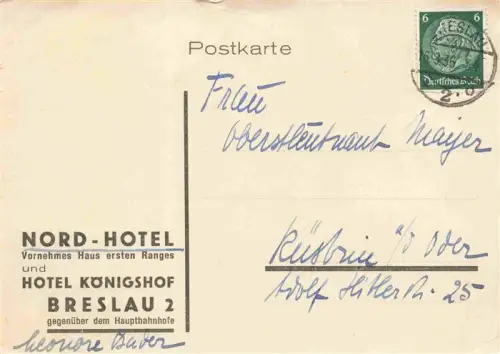 Postkarte
6 6
Deutsches Reich
BRESLAU
2
Frau
Oberstleutnant Mayer
Küstrin a/d Oder
Adolf Hitlerstr. 25
NORD-HOTEL
Vornehmes Haus ersten Ranges
und
HOTEL KÖNIGSHOF
BRESLAU 2
gegenüber dem Hauptbahnhofe
Leonore Bader